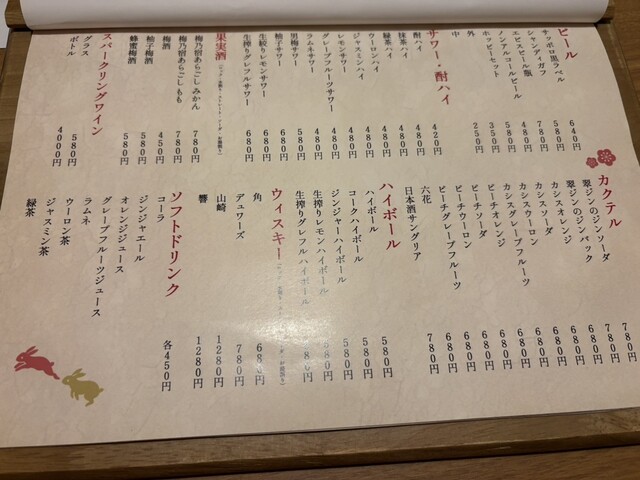 ビール
サッポロ黒ラベル 640円
シャンディガフ 580円
エビスビール瓶 780円
ノンアルコールビール 480円
ホッピーセット 580円
外 350円
中 250円
サワー・酎ハイ
酎ハイ 420円
抹茶ハイ 480円
緑茶ハイ 480円
ウーロンハイ 480円
ジャスミンハイ 480円
レモンサワー 480円
グレープフルーツサワー 480円
ラムネサワー 480円
男梅サワー 580円
柚子サワー 580円
生絞りレモンサワー 680円
生搾りグレフルサワー 680円
果実酒
梅乃宿あらごしみかん 780円
梅乃宿あらごしもも 780円
梅酒 450円
柚子梅酒 580円
蜂蜜梅酒 580円
スパークリングワイン
グラス 580円
ボトル 4000円
カクテル
翠ジンのジンソーダ 780円
翠ジンのジンバック 780円
カシスオレンジ 680円
カシスソーダ 680円
カシスウーロン 680円
カシスグレープフルーツ 680円
ピーチオレンジ 680円
ピーチソーダ 680円
ピーチウーロン 680円
ピーチグレープフルーツ 680円
六花
日本酒サングリア 780円
ハイボール
ハイボール 580円
コークハイボール 580円
ジンジャーハイボール 580円
生搾りレモンハイボール 580円
生搾りグレフルハイボール 80円
ウィスキー
角 680円
デュワーズ 780円
山崎 1280円
響 1280円
ソフトドリンク 各450円
コーラ
ジンジャエール
オレンジジュース
グレープフルーツジュース
ラムネ
ウーロン茶
ジャスミン茶
緑茶